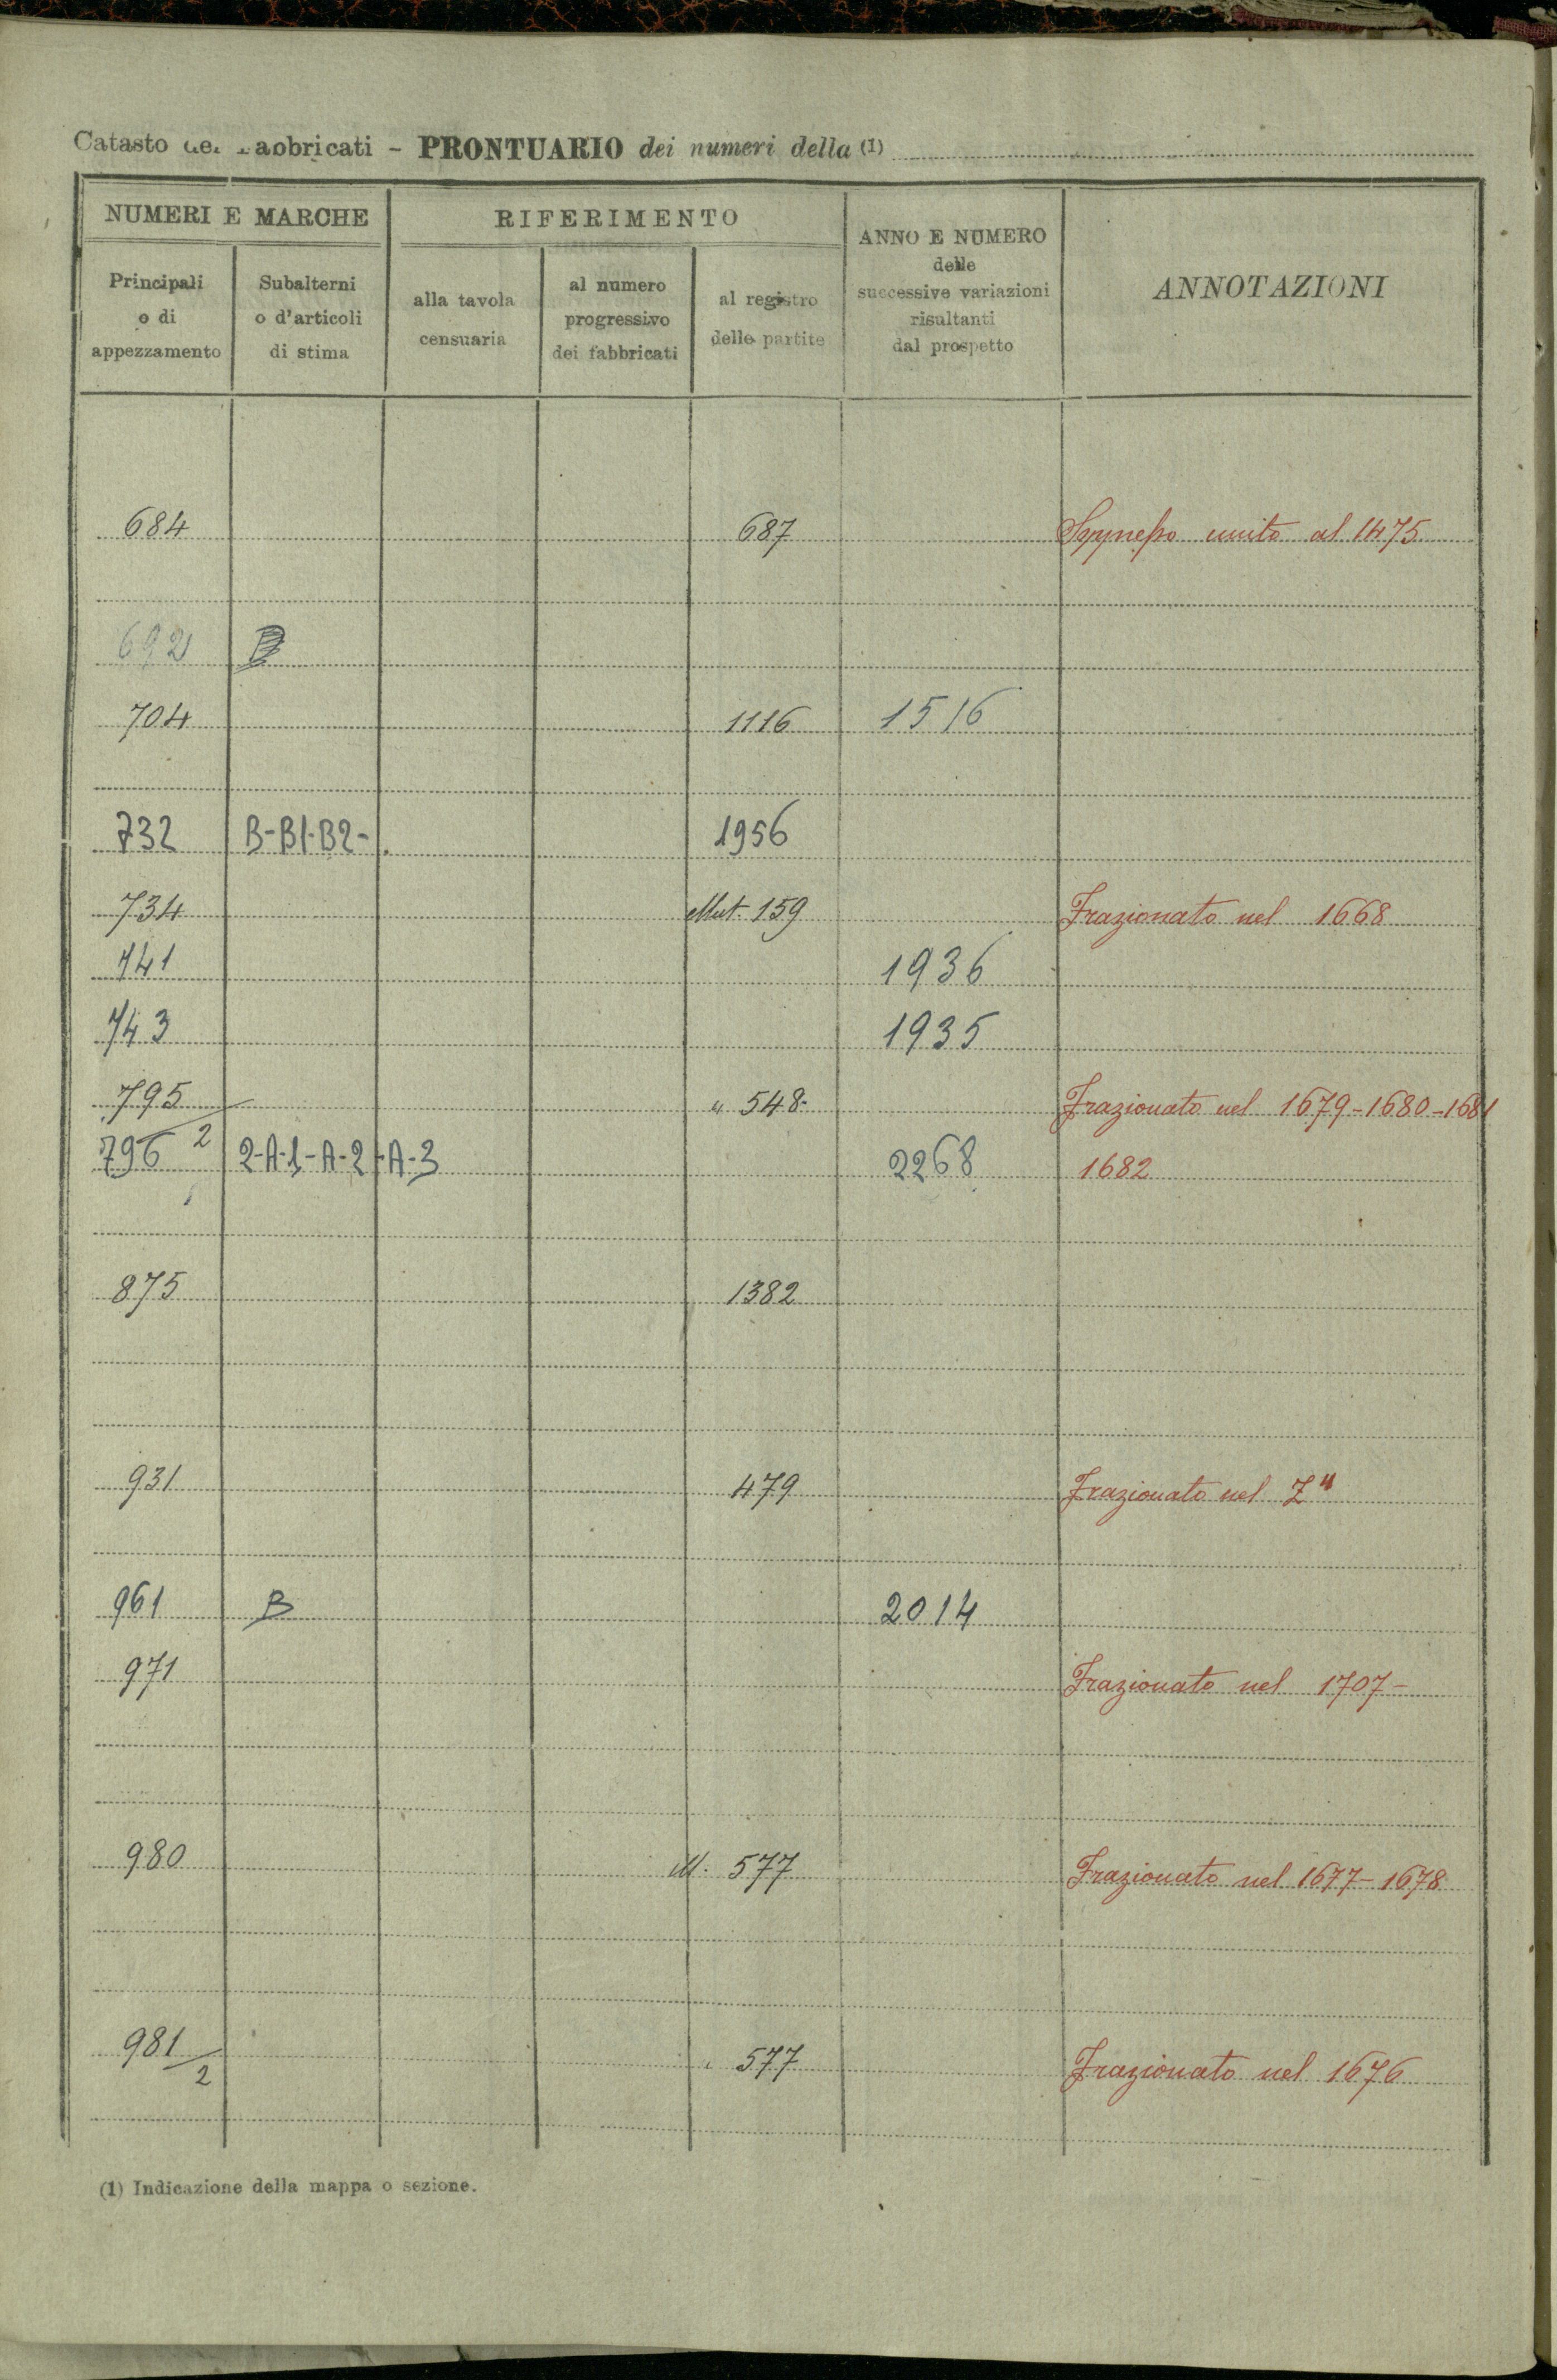 Catasto dei Fabbricati - PRONTUARIO dei numeri della (1)
NUMERI E MARCHE RIFERIMENTO ANNO E NUMERO delle successive variazioni risultanti dal prospetto ANNOTAZIONI
Principali o di appezzamento Subalterni o d'articoli di stima alla tavola censuaria al numero progressivo dei fabbricati al registro delle partite
684 687 Soppresso unito al 1475
692 B
704 1116 1516
732 B-B1-B2- 1956
734 Mut. 159 Frazionato nel 1668
741 1936
743 1935
795 " 548- Frazionato nel 1679-1680-1681
796 2 2-A-1-A-2-A-3 2268 1682
875 1382
931 479 Frazionato nel
961 B 2014
971 Frazionato nel 1707-
980 M. 577 Frazionato nel 1677-1678
981/2 577 Frazionato nel 1676
(1) Indicazione della mappa o sezione.